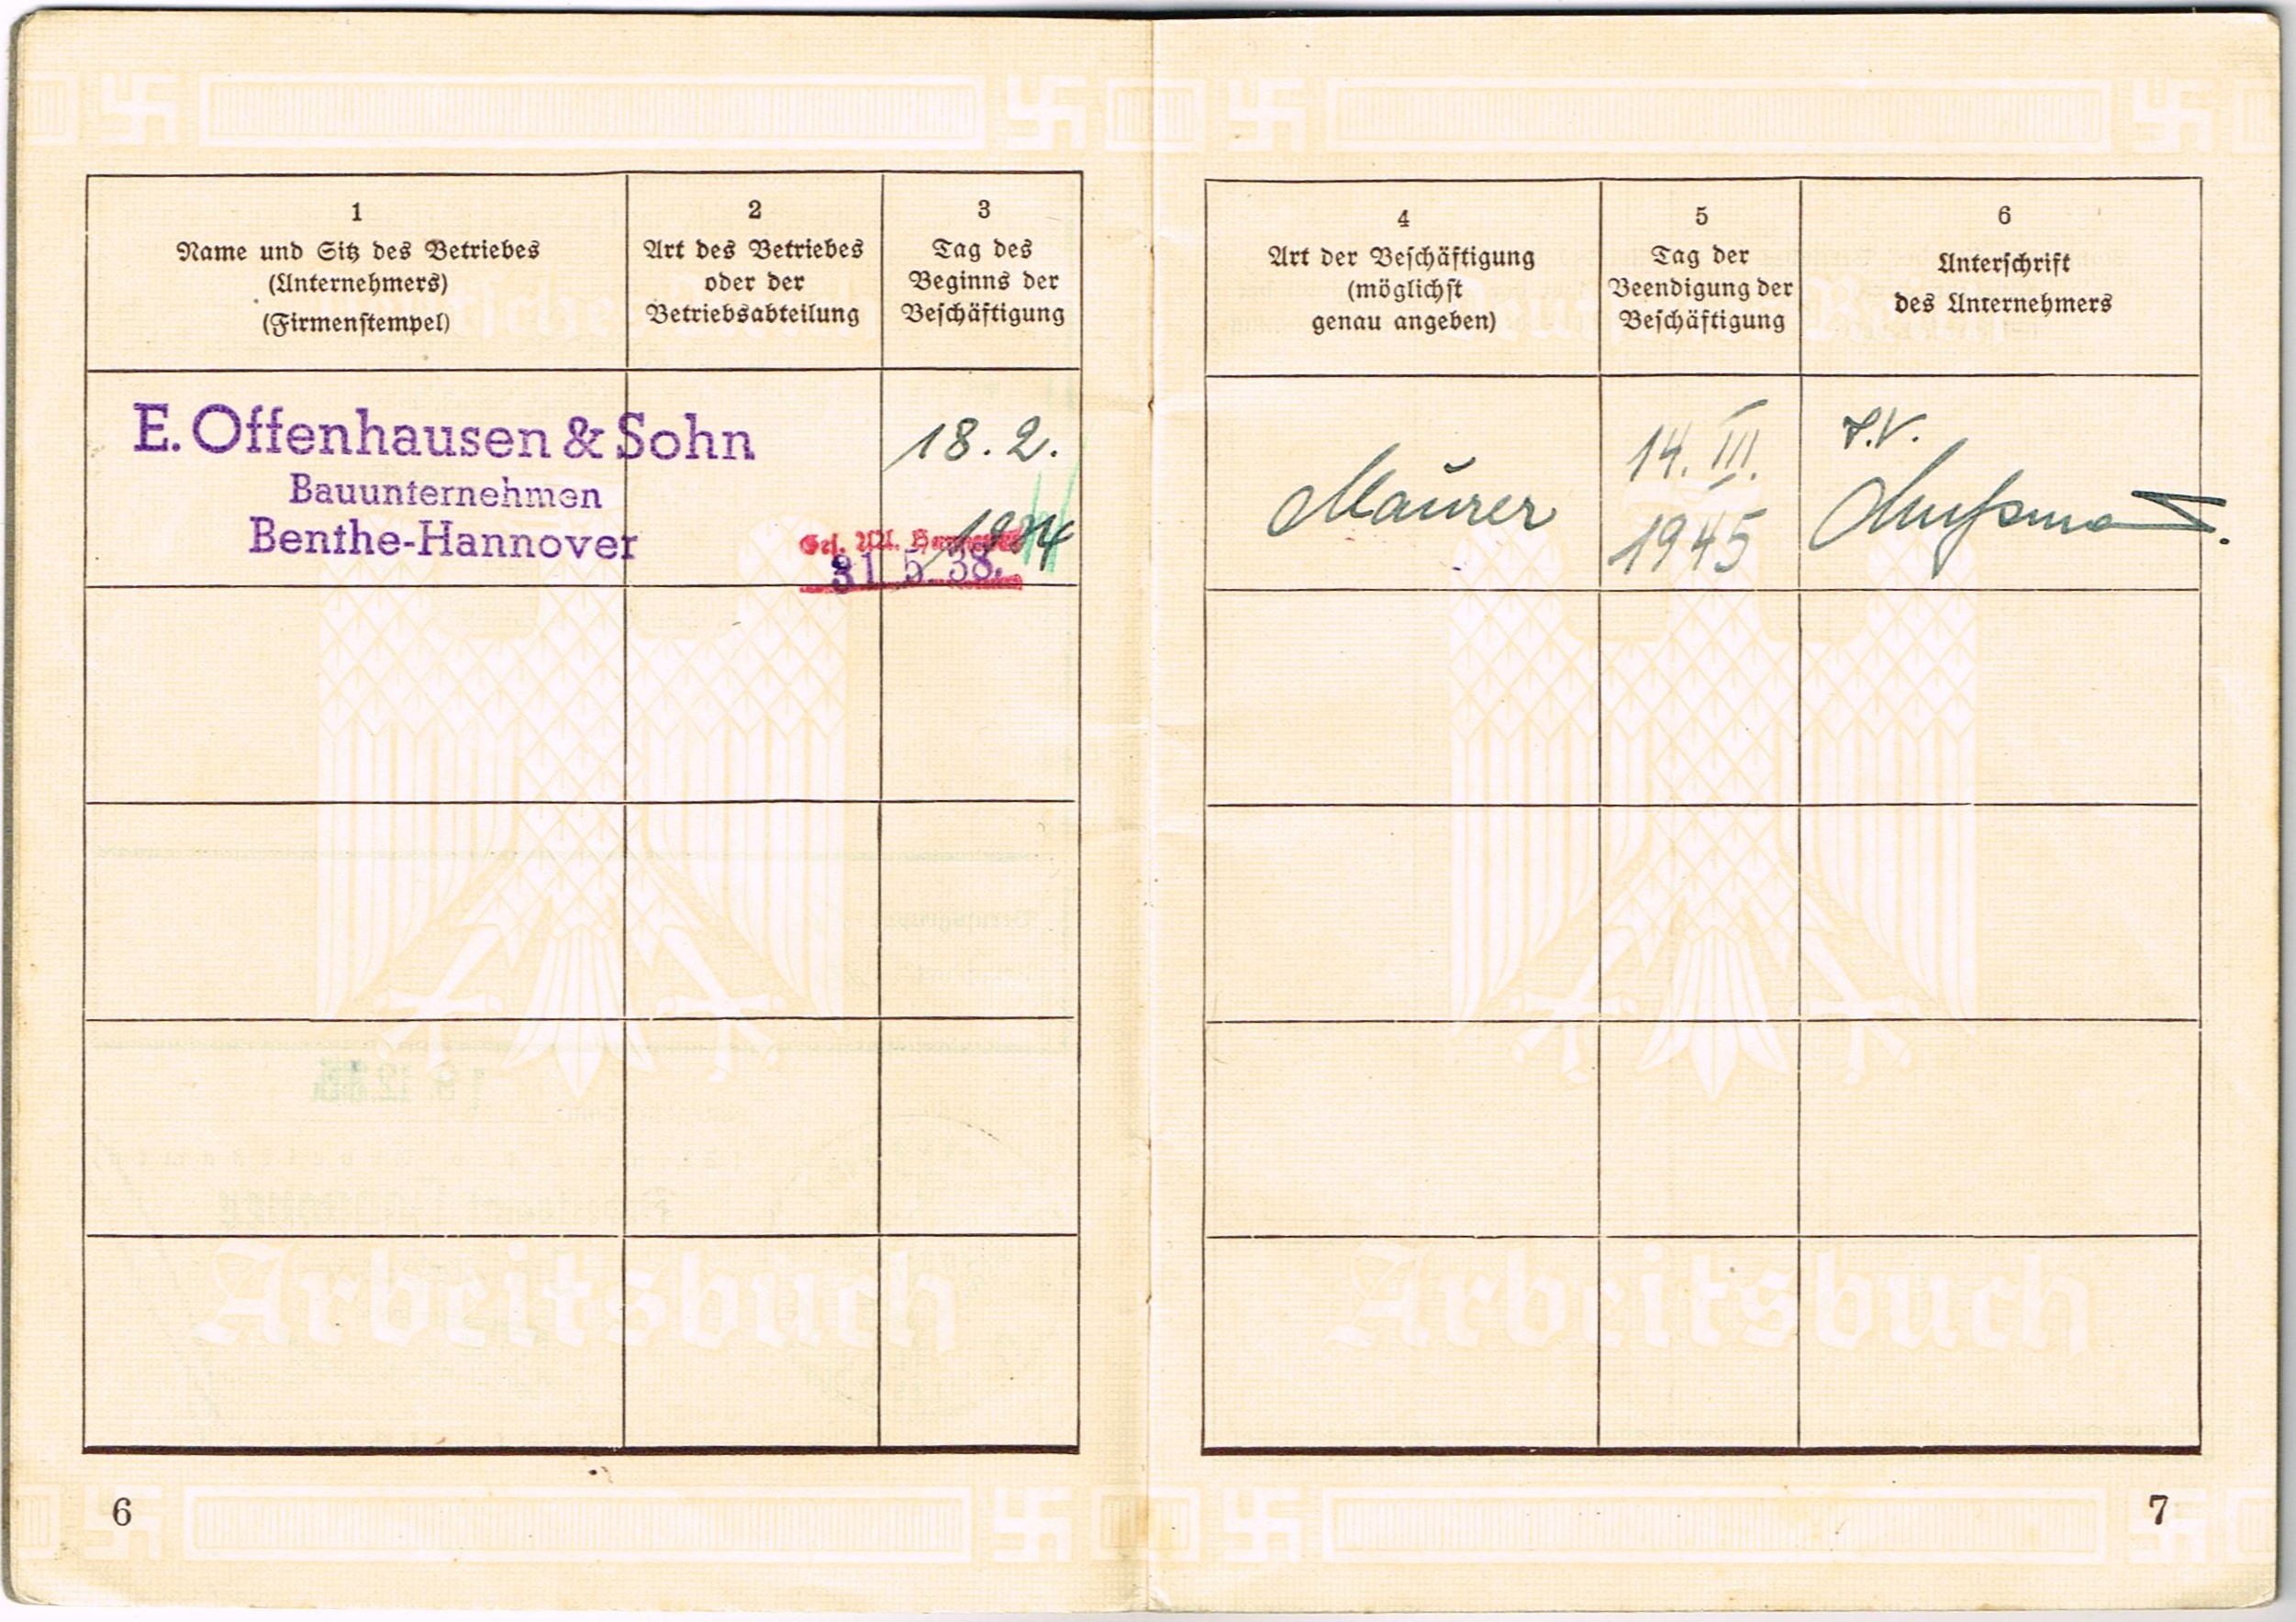 1
Name und Sitz des Betriebes
(Unternehmers)
(Firmenstempel)
2
Art des Betriebes
oder der
Betriebsabteilung
3
Tag des
Beginns der
Beschäftigung
E. Offenhausen & Sohn
Bauunternehmen
Benthe-Hannover
18. 2.
Hannover
31. 5. 38.
Arbeitsbuch
6
4
Art der Beschäftigung
(möglichst
genau angeben)
5
Tag der
Beendigung der
Beschäftigung
6
Unterschrift
des Unternehmers
Maurer
14. III.
1945
Arbeitsbuch
7